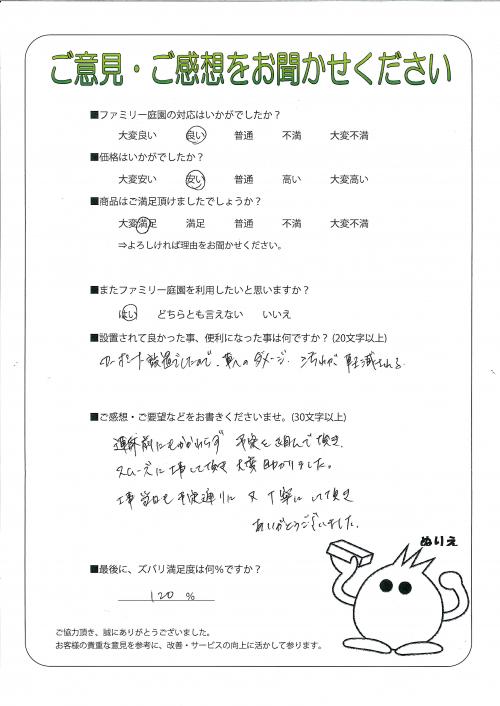 ご意見・ご感想をお聞かせください
■ファミリー庭園の対応はいかがでしたか？
大変良い 良い 普通 不満 大変不満
■価格はいかがでしたか？
大変安い 安い 普通 高い 大変高い
■商品はご満足頂けましたでしょうか？
大変満足 満足 普通 不満 大変不満
⇒よろしければ理由をお聞かせください。
■またファミリー庭園を利用したいと思いますか？
はい どちらとも言えない いいえ
■設置されて良かった事、便利になった事は何ですか？(20文字以上)
カーポート設置でしたので、車へのダメージ、汚れが軽減される
■ご感想・ご要望などをお書きくださいませ。(30文字以上)
連休前にもかかわらず 予定を組んで頂き
スムーズに工事して頂き 大変助かりました。
工事当日も予定通りに 又丁寧にして頂き
ありがとうございました。
ぬりえ
■最後に、ズバリ満足度は何％ですか？
120 %
ご協力頂き、誠にありがとうございました。
お客様の貴重な意見を参考に、改善・サービスの向上に活かして参ります。